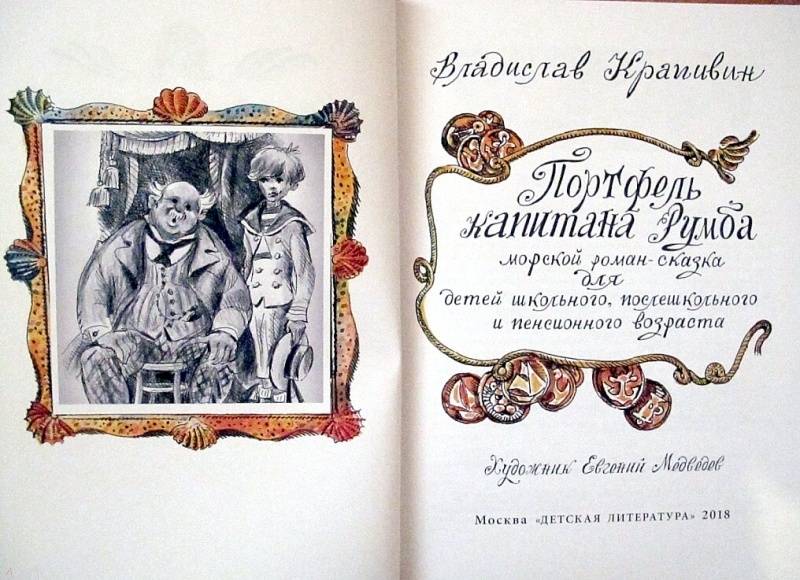 Владислав Крапивин
Портфель
капитана Румба
морской роман-сказка
для
детей школьного, послешкольного
и пенсионного возраста
Художник Евгений Медведев
Москва «ДЕТСКАЯ ЛИТЕРАТУРА» 2018